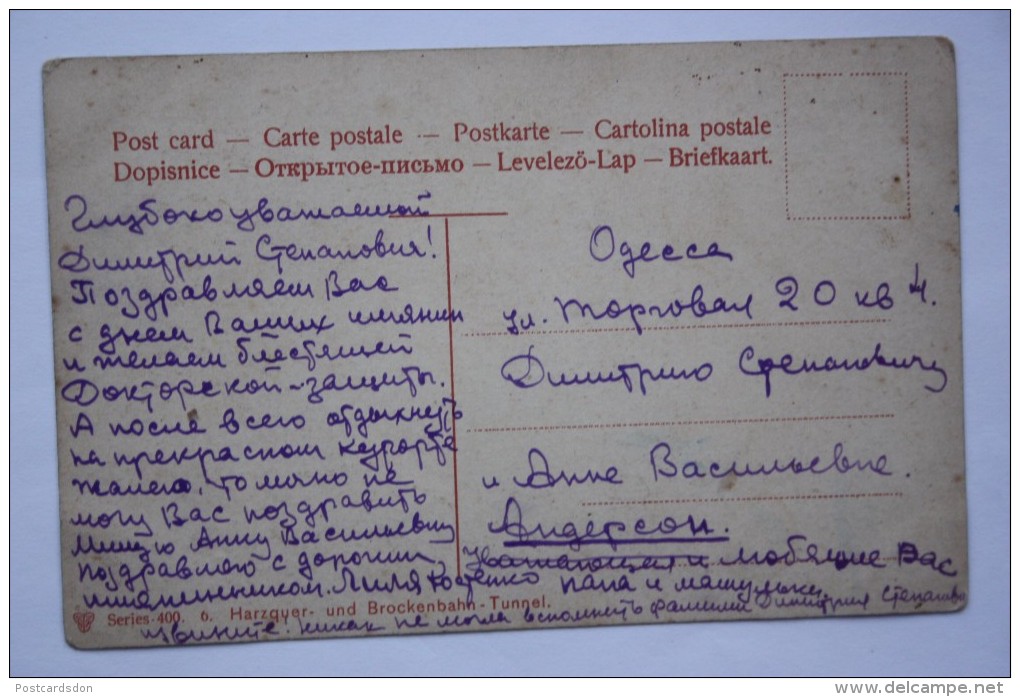 Post card — Carte postale — Postkarte — Cartolina postale
Dopisnice — Открытое-письмо — Levelező-Lap — Briefkaart.
Глубокоуважаемой
Димитрий Степанович!
Поздравляем Вас
с днем Ваших имянин
и желаем блестящей
Докторской-защиты.
А после всего отдыхнуть
на прекрасном курорте
лично не
могу Вас поздравить
Милую Анну Васильевну
поздравляю с дорогим
имянинником. Лиля Костенко папа и мамулька
Одесса
ул. Торговая 20 кв 4.
Димитрию Степановичу
и Анне Васильевне.
Андерсон.
Уважающая и любящие Вас
Series 400. 6. Harzquer- und Brockenbahn-Tunnel.
извините. никак не могла вспомнить фамилии Димитрия Степанов
Postcardsdon
www.delcampe.net